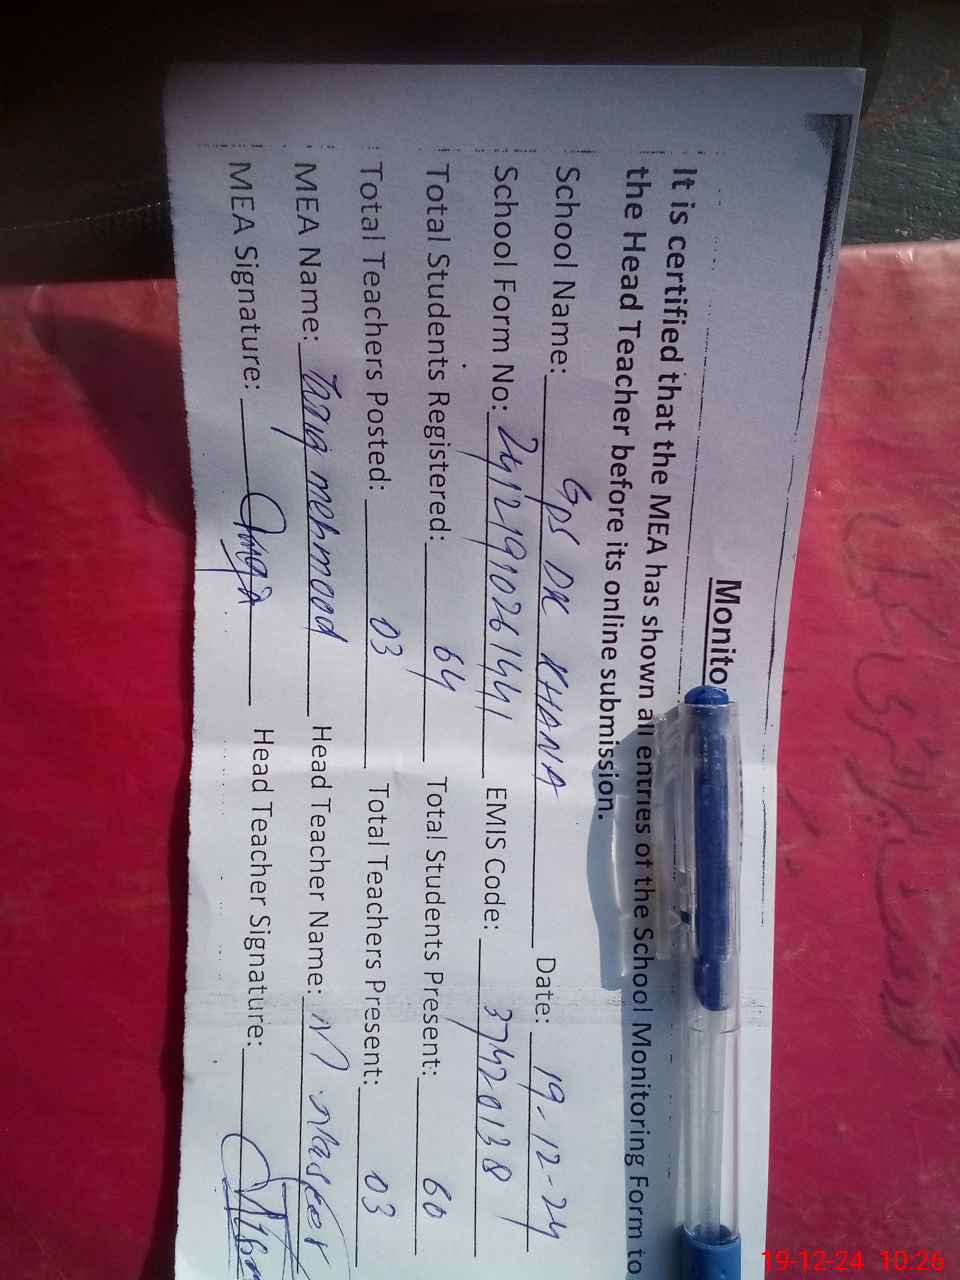 Monito
It is certified that the MEA has shown all entries of the School Monitoring Form to
the Head Teacher before its online submission.
School Name: GPS DK KHANA Date: 19-12-24
School Form No: 24121910261441 EMIS Code: 37420138
Total Students Registered: 64 Total Students Present: 60
Total Teachers Posted: 03 Total Teachers Present: 03
MEA Name: mehmood Head Teacher Name: M
MEA Signature: Head Teacher Signature:
19-12-24 10:26